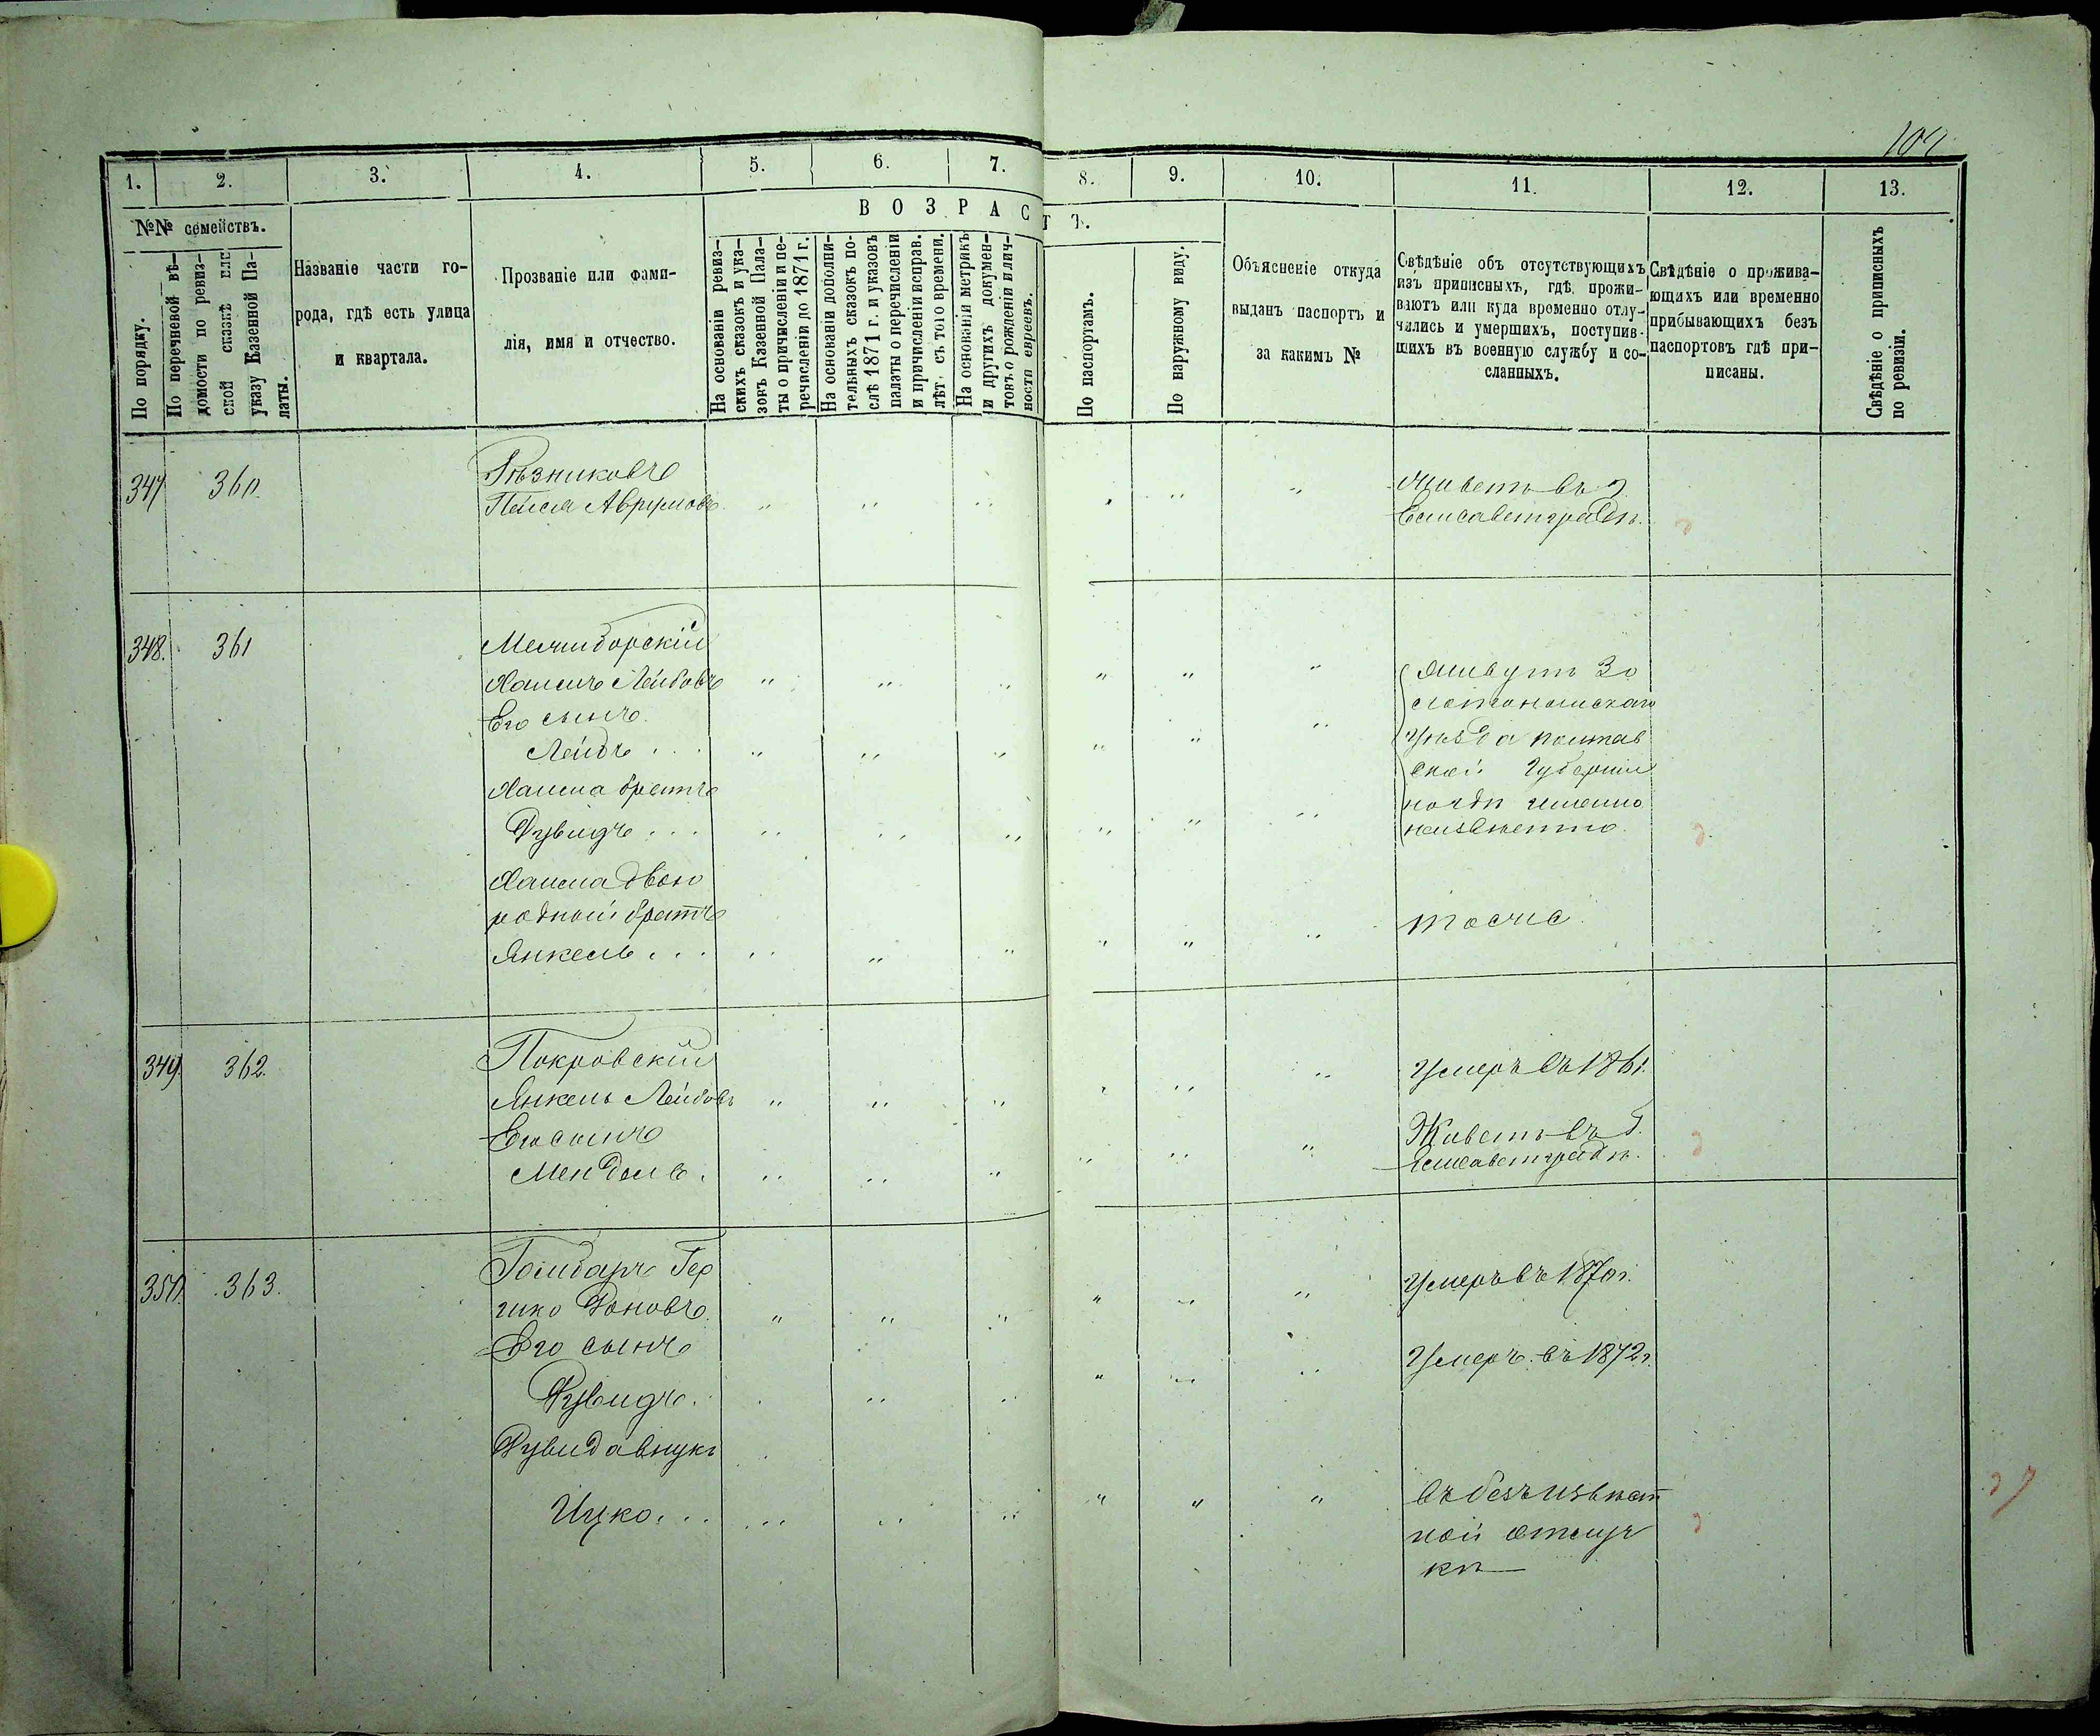 109
1.
2.
3.
4.
5.
6.
7.
8.
9.
10.
11.
12.
13.
№№ семействъ.
По порядку.
По перечневой вѣ-
домости по ревиз-
ской сказкѣ или
указу Казенной Па-
латы.
Названіе части го-
рода, гдѣ есть улица
и квартала.
Прозваніе или фами-
лія, имя и отчество.
ВОЗРАСТЪ.
На основаніи ревиз-
скихъ сказокъ и ука-
зовъ Казенной Пала-
ты о причисленіи и пе-
речисленіи до 1871 г.
На основаніи дополни-
тельныхъ сказокъ по-
слѣ 1871 г. и указовъ
палаты о перечисленіи
и причисленіи исправ.
лѣтъ съ того времени.
На основаніи метрикъ
и другихъ докумен-
товъ о рожденіи и лич-
ности евреевъ.
По паспортамъ.
По наружному виду.
Объясненіе откуда
выданъ паспортъ и
за какимъ №
Свѣдѣніе объ отсутствующихъ
изъ приписныхъ, гдѣ прожи-
ваютъ или куда временно отлу-
чились и умершихъ, поступив-
шихъ въ военную службу и со-
сланныхъ.
Свѣдѣніе о прожива-
ющихъ или временно
прибывающихъ безъ
паспортовъ гдѣ при-
писаны.
Свѣдѣніе о приписныхъ
по ревизіи.
347 360.
Рѣзниковъ
Пейсея Аврумовъ
Живетъ въ г.
Елисаветградѣ.
348. 361
Межиборскій
Хаимъ Лейбовъ
Его сынъ
Лейбъ
Хаима братъ
Дувидъ
Живутъ Зо
лотоношскаго
уѣзда Полтав
ской Губерніи
но гдѣ именно
неизвѣстно.
Хаима двою
родный братъ
Янкель
тоже
349. 362.
Покровскій
Янкель Лейбовъ
Умеръ въ 1861.
Его сынъ
Мендель.
Живетъ въ г.
Елисаветградѣ.
350. 363.
Гольдаръ Гер
шко Роновъ.
Умеръ въ 1870 г.
Его сынъ
Дувидъ.
Умеръ въ 1872 г.
Дувида внукъ
Ицко
въ безъизвѣст
ной отлуч
кѣ